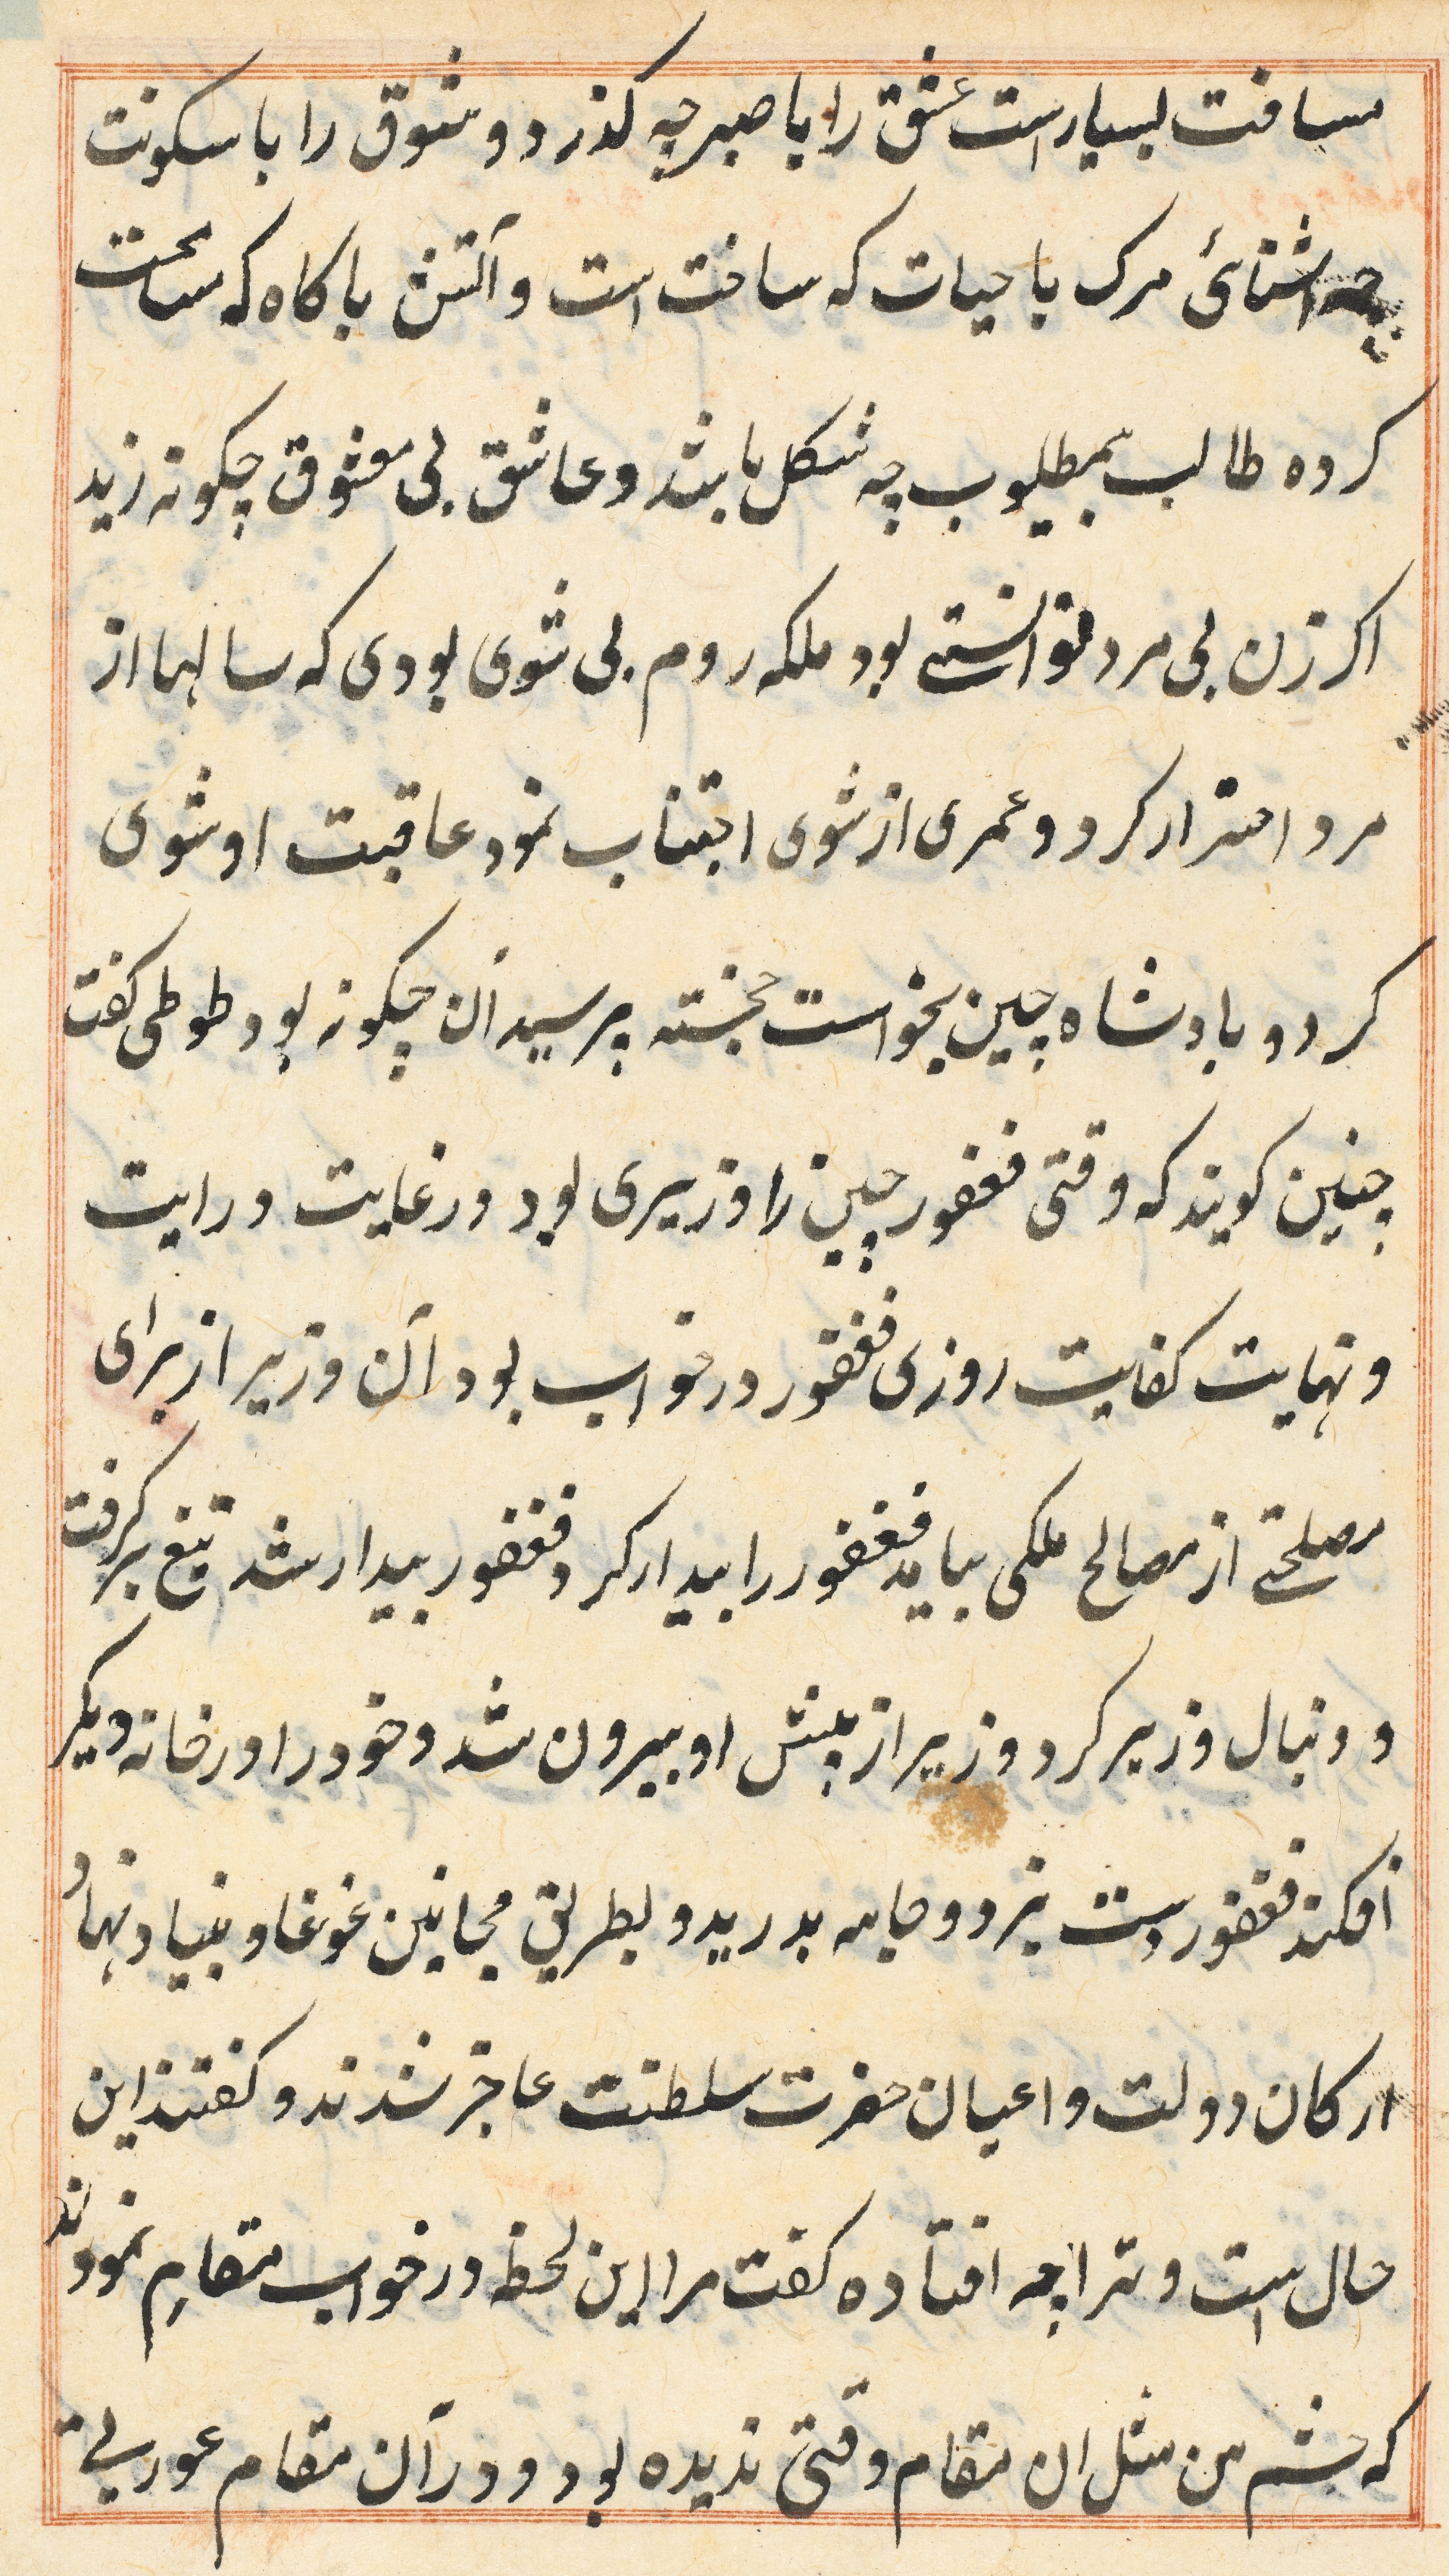 مسافت بسیار است عشق را با صبر چه کذر د و شوق را با سکونت
چه اشنائ مرک با حیات که ساخت است و آتش با کاه که ساخت
کرده طالب بمطلوب چه شکل باشد و عاشق بی معشوق چکونه زید
اکر زن بی مرد توانستے بود ملکه روم بی شوی بودی که سالها از
مرد احتراز کرد و عمری از شوی اجتناب نمود عاقبت او شوی
کرد و بادشاه چین بخواست خجسته پرسید آن چکونه بود طوطی کفت
چنین کویند که وقتی فغفور چین را وزیری بود در غایت درایت
و نهایت کفایت روزی فغفور در خواب بود آن وزیر از برای
مصلحتے از مصالح ملکی بیامد فغفور را بیدار کرد فغفور بیدار شد تیغ برکرفت
و دنبال وزیر کرد وزیر از پیش او بیرون شد و خود را در خانه دیکر
افکند فغفور دست بزد و جامه بدرید و بطریق مجانین غوغا و بنیاد نهاد
ارکان دولت و اعیان حضرت سلطنت عاجز شدند و کفتند این
حال است و ترا چه افتاده کفت مرا این لحظه در خواب مقامِ نمودند
که چشم من مثل ان مقام وقتی ندیده بود و در آن مقام عورتے